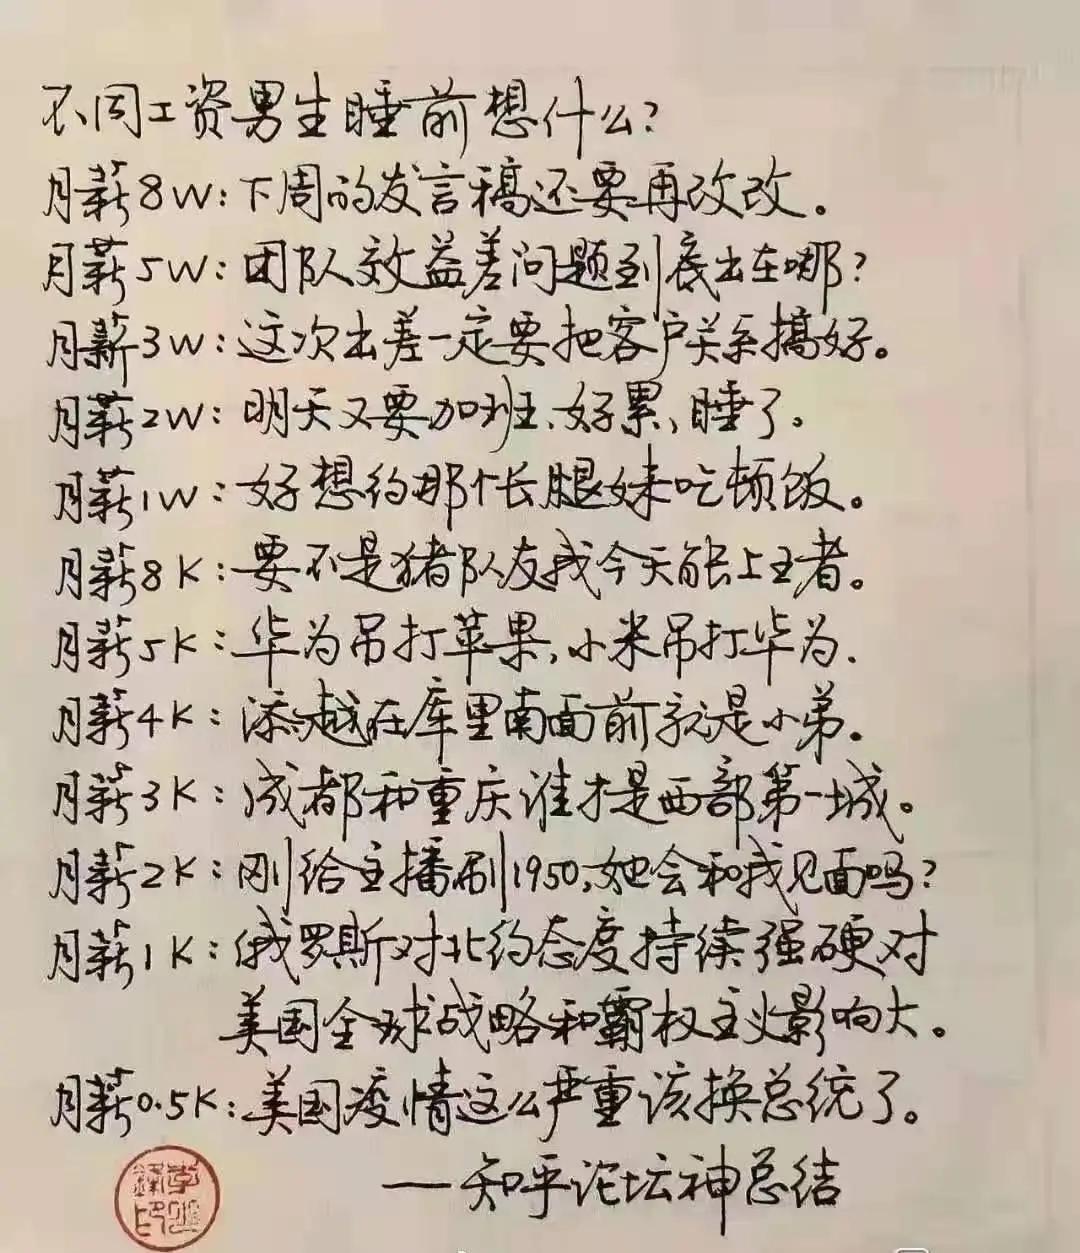 不同工资男生睡前想什么?
月薪8W:下周的发言稿还要再改改。
月薪5W:团队效益差问题到底出在哪?
月薪3W:这次出差一定要把客户关系搞好。
月薪2W:明天又要加班、好累、睡了.
月薪1W:好想约那个长腿妹吃顿饭。
月薪8K:要不是猪队友我今天能上王者。
月薪5K:华为吊打苹果,小米吊打华为.
月薪4K:添越在库里南面前就是小弟.
月薪3K:成都和重庆谁才是西部第一城。
月薪2K:刚给主播刷1950,她会和我见面吗?
月薪1K:俄罗斯对北约态度持续强硬对
美国全球战略和霸权主义影响大。
月薪0.5K:美国疫情这么严重该换总统了。
——知乎论坛神总结